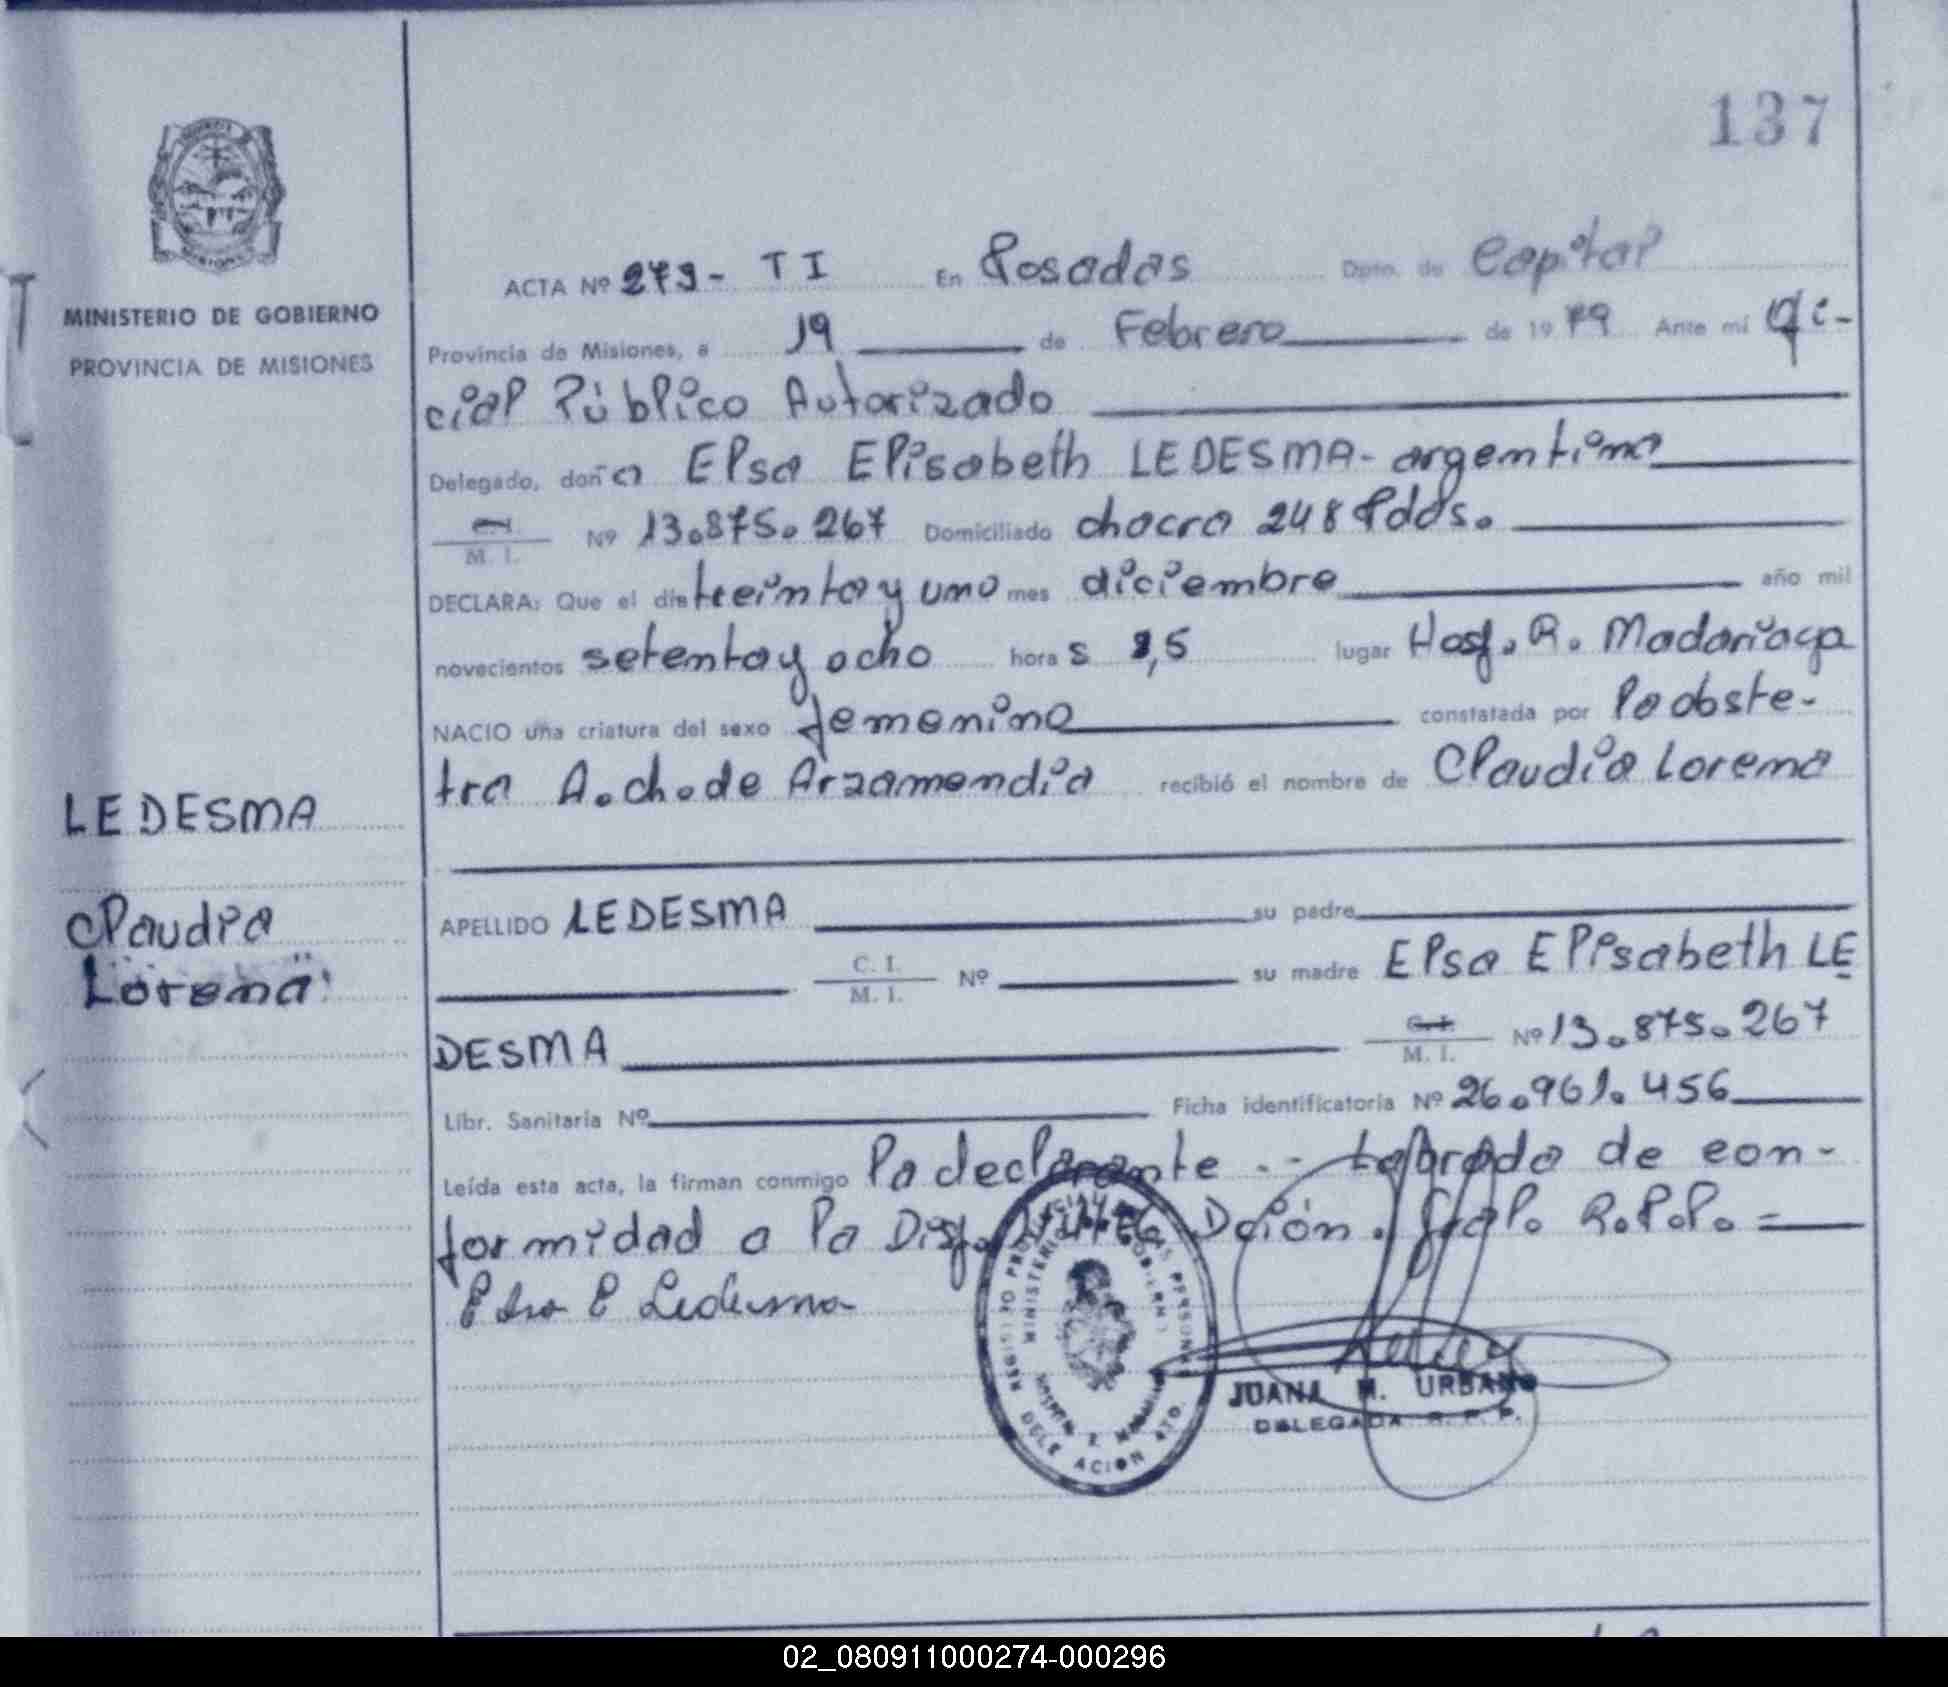 137
MINISTERIO DE GOBIERNO
PROVINCIA DE MISIONES
ACTA Nº 279- TI En Posadas Dpto. de Capital
Provincia de Misiones, a 19 de Febrero de 1979 Ante mí Ofi-
cial Público Autorizado
Delegado, doña Elsa Elisabeth LEDESMA- argentina
M. I. Nº 13.875.267 Domiciliado chacra 248 Pdas.
DECLARA: Que el día treinta y uno mes diciembre año mil
novecientos setenta y ocho horas ,5 lugar Hosp. R. Madariaga
NACIO una criatura del sexo femenino constatada por la obste-
tra A. ch. de Arzamendia recibió el nombre de Claudia Lorena
LEDESMA
Claudia
Lorena
APELLIDO LEDESMA su padre
C. I. M. I. Nº su madre Elsa Elisabeth LE
DESMA C. I. M. I. Nº 13.875.267
Libr. Sanitaria Nº Ficha identificatoria Nº 26.961.456
Leída esta acta, la firman conmigo la declarante -- Labrada de con-
formidad a la Disp. Dción. Gral. R.P.P. =
Elsa E Ledesma
REGISTRO PROVINCIAL DE LAS PERSONAS
MINISTERIO DE GOBIERNO
DELEGACION
JUANA M. URBANO
DELEGADA R. P. P.
02_080911000274-000296